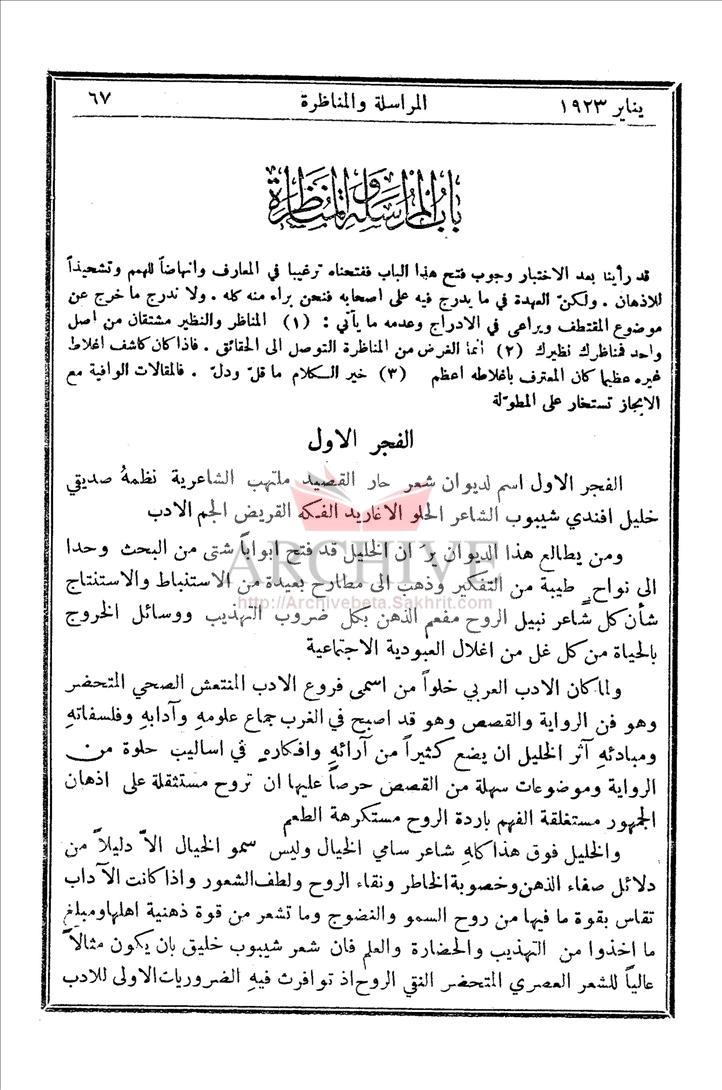 يناير ١٩٢٣ المراسلة والمناظرة ٦٧
باب المراسلة والمناظرة
قد رأينا بعد الاختبار وجوب فتح هذا الباب ففتحناه ترغيبا في المعارف وانهاضاً للهمم وتشحيذاً
للاذهان . ولكنّ العهدة في ما يدرج فيه على اصحابه فنحن براء منه كله . ولا ندرج ما خرج عن
موضوع المقتطف ويراعى في الادراج وعدمه ما يأتي : (١) المناظر والنظير مشتقان من اصل
واحد فمناظرك نظيرك (٢) انما الغرض من المناظرة التوصل الى الحقائق . فاذا كان كاشف اغلاط
غيره عظيما كان المعترف باغلاطه اعظم (٣) خير الكلام ما قلّ ودلّ . فالمقالات الوافية مع
الايجاز تستخار على المطوّلة
الفجر الاول
الفجر الاول اسم لديوان شعر حار القصيد ملتهب الشاعرية نظمهُ صديقي
خليل افندي شيبوب الشاعر الحلو الاغاريد الفكه القريض الجم الادب
ومن يطالع هذا الديوان يرَ ان الخليل قد فتح ابواباً شتى من البحث وحدا
الى نواحٍ طيبة من التفكير وذهب الى مطارح بعيدة من الاستنباط والاستنتاج
شأن كل شاعر نبيل الروح مفعم الذهن بكل ضروب التهذيب ووسائل الخروج
بالحياة من كل غل من اغلال العبودية الاجتماعية
ولما كان الادب العربي خلواً من اسمى فروع الادب المنتعش الصحي المتحضر
وهو فن الرواية والقصص وهو قد اصبح في الغرب جماع علومهِ وآدابهِ وفلسفاتهِ
ومبادئهِ آثر الخليل ان يضع كثيراً من آرائهِ وافكارهِ في اساليب حلوة من
الرواية وموضوعات سهلة من القصص حرصاً عليها ان تروح مستثقلة على اذهان
الجمهور مستغلقة الفهم باردة الروح مستكرهة الطعم
والخليل فوق هذا كلهِ شاعر سامي الخيال وليس سمو الخيال الاّ دليلاً من
دلائل صفاء الذهن وخصوبة الخاطر ونقاء الروح ولطف الشعور واذا كانت الآداب
تقاس بقوة ما فيها من روح السمو والنضوج وما تشعر من قوة ذهنية اهلها ومبلغ
ما اخذوا من التهذيب والحضارة والعلم فان شعر شيبوب خليق بان يكون مثالاً
عالياً للشعر العصري المتحضر النقي الروح اذ توافرت فيهِ الضروريات الاولى للادب
ARCHIVE
http://Archivebeta.Sakhrit.com